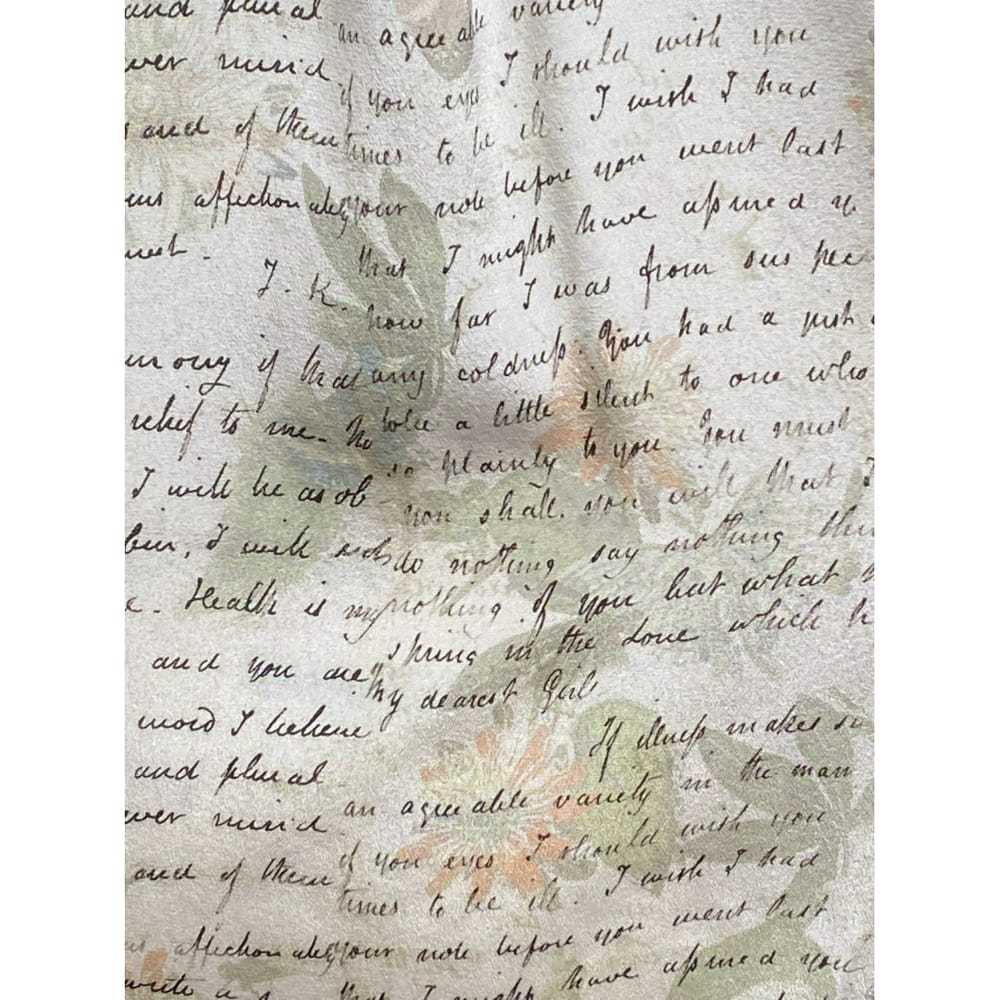 and plural an agreeable variety
ever mind. if you eyes I should wish you
and of them times to be ill. I wish I had
affectionately your note before you went last
that I might have assured
J. K. how far I was from
if that any coldness. You had a just
relief to me - a little silent to one who
so plainly to you. You must
I will be as ob- you shall. you will that I
I will do nothing say nothing
. Health is my nothing of you but what
and you are spring in the Love which
My dearest Girl
word I believe If illness makes
and plural an agreeable variety in the man
ever mind. if you eyes I should wish you
and of them times to be ill. I wish I had
affectionately your note before you went last
write a that I might have assured you